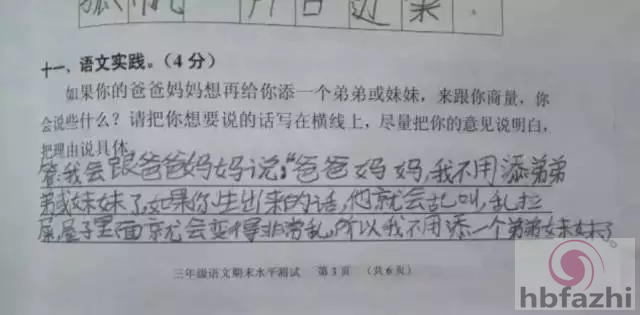 十一、语文实践。(4分)
如果你的爸爸妈妈想再给你添一个弟弟或妹妹，来跟你商量，你
会说些什么？请把你想要说的话写在横线上，尽量把你的意见说明白，
把理由说具体。
答：我会跟爸爸妈妈说："爸爸妈妈，我不用添弟弟
弟或妹妹了，如果你生出来的话，他就会乱叫，乱拉
屎，屋子里面就会变得非常乱，所以我不用添一个弟弟妹妹了。
三年级语文期末水平测试 第3页 (共6页)
hbfazhi